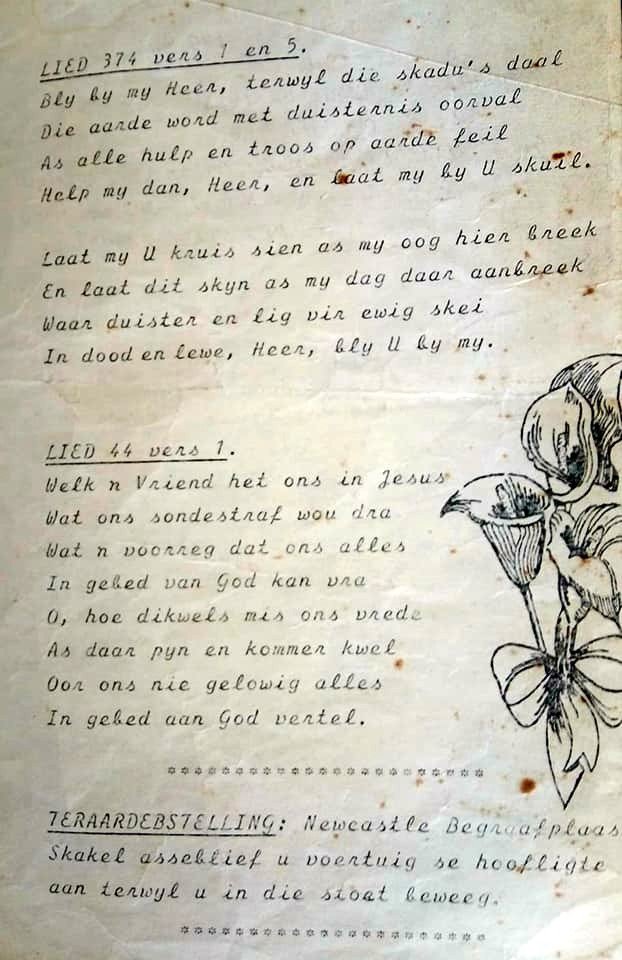 LIED 374 vers 1 en 5.
Bly by my Heer, terwyl die skadu's daal
Die aarde word met duisternis oorval
As alle hulp en troos op aarde feil
Help my dan, Heer, en laat my by U skuil.
Laat my U kruis sien as my oog hier breek
En laat dit skyn as my dag daar aanbreek
Waar duister en lig vir ewig skei
In dood en lewe, Heer, bly U by my.
LIED 44 vers 1.
Welk n Vriend het ons in Jesus
Wat ons sondestraf wou dra
Wat n voorreg dat ons alles
In gebed van God kan vra
O, hoe dikwels mis ons vrede
As daar pyn en kommer kwel
Oor ons nie gelowig alles
In gebed aan God vertel.
***********************
TERAARDEBSTELLING: Newcastle Begraafplaas
Skakel asseblief u voertuig se hoofligte
aan terwyl u in die stoet beweeg.
**********************